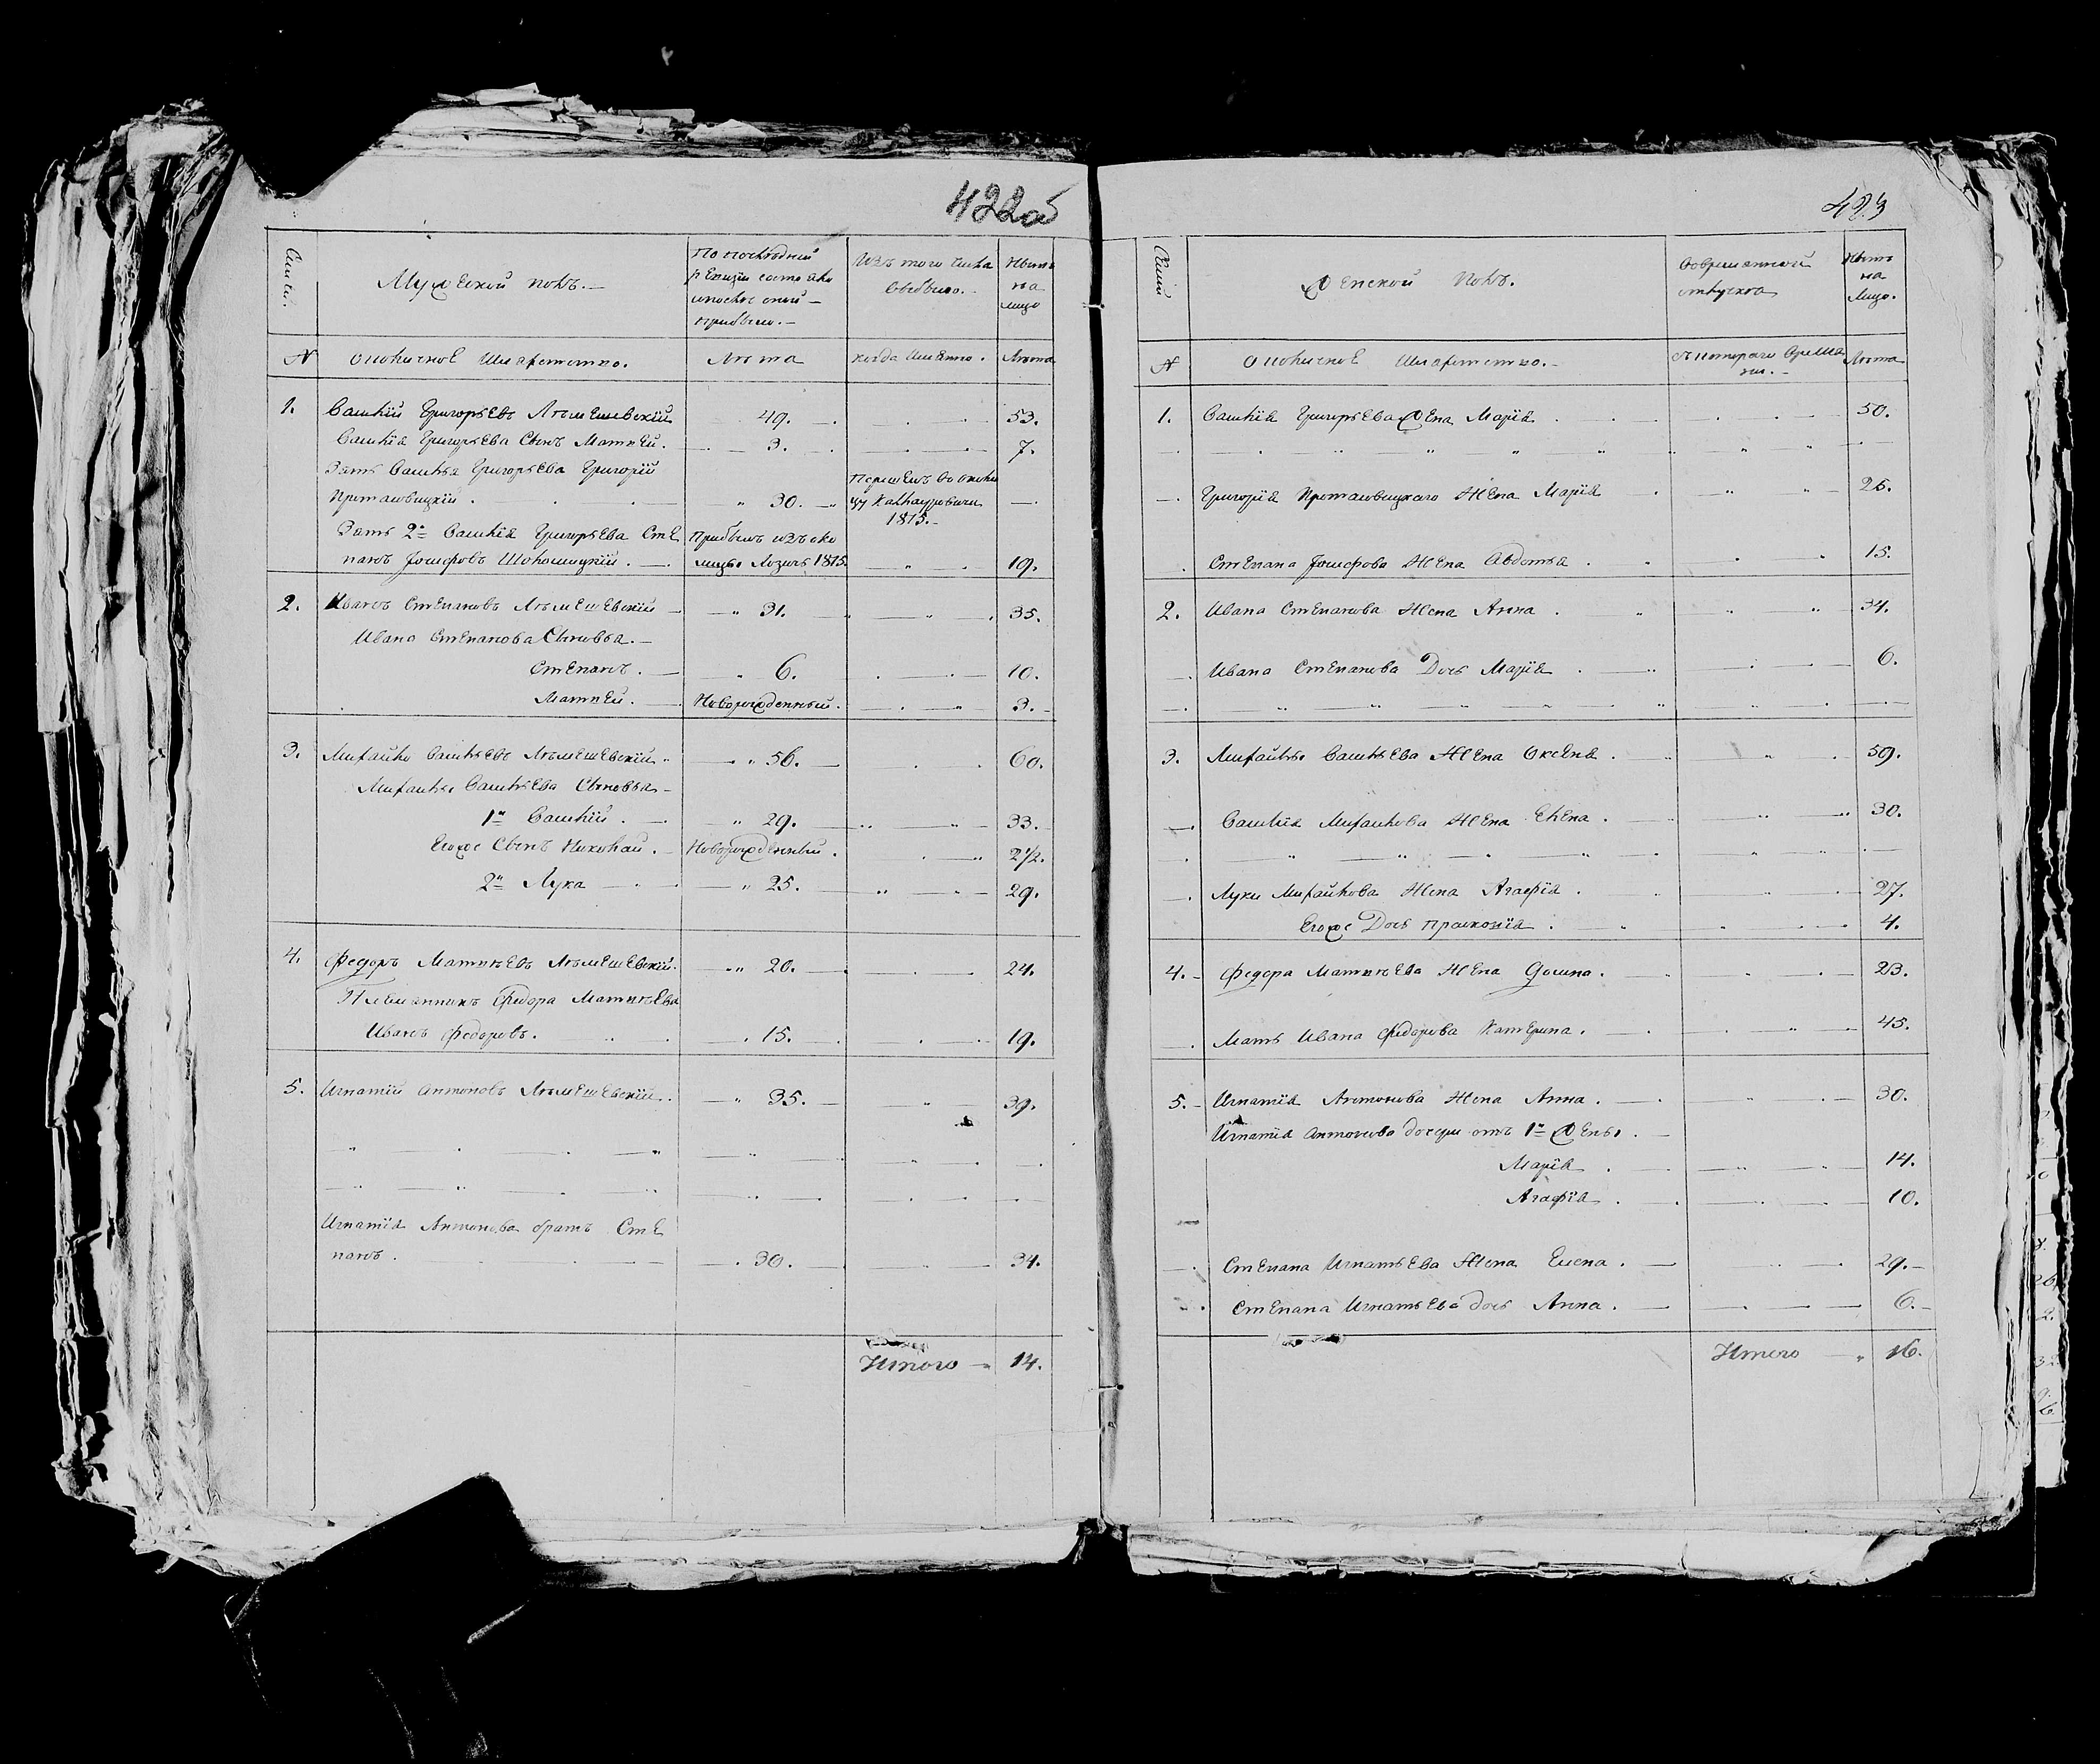 422об
Семьи.
Мужеской полъ.—
По последней
ревизіи состояло
и после оной —
прибыло.—
Изъ того числа
выбыло.—
Ныне
на
лицо
№
околичное Шляхетство.
Лѣта
когда имянно.
Лѣта
1. Василій Григорьевъ Лѣмешевскій 49. 53.
Василія Григорьева Сынъ Матвей. 3. 7.
Зять Василья Григорьева Григорій
Протасовицкій. 30. —
Перешелъ во околи
цу Калауровичи
1815.—
Зять 2й Василія Григорьева Сте
панъ Іосифовъ Шоломицкій.
Прибылъ изъ око
лицы Лозичь 1815.
19.
2. Иванъ Степановъ Лѣмешевскій — 31. 35.
Ивана Степанова Сыновья.—
Степанъ. — 6. 10.
Матвей. — Новорожденный. 3.—
3. Михайло Васильевъ Лѣмешевскій 56. 60.
Михайлы Васильева Сыновья—
1й Василій. — 29. 33.
Егоже Сынъ Николай. — Новорожденный. 2½.
2й Лука — 25. 29.
4. Федоръ Матвѣевъ Лѣмешевскій. 20. 24.
Племянникъ Федора Матвѣева
Иванъ Федоровъ. 15. 19.
5. Игнатій Антоновъ Лѣмешевскій. 35. 39.
Игнатія Антонова братъ Сте
панъ. 30. 34.
Итого — 14.
423
Семьи
Женской Полъ.
Вовременной
отлучкѣ
Ныне
на
Лицо.
№
Околичное Шляхетство.—
съ котораго Време
ни.—
Лѣта
1. Василія Григорьева Жена Марія 50.
Григорія Протасовицкаго Жена Марія 25.
Степана Іосифова Жена Авдотья 15.
2. Ивана Степанова Жена Анна 34.
Ивана Степанова Дочь Марія 6.
3. Михайлы Васильева Жена Оксеня 59.
Василія Михайлова Жена Елена 30.
Луки Михайлова Жена Агафія 27.
Егоже Дочь Прасковія 4.
4. Федора Матвѣева Жена 23.
Мать Ивана Федорова Катерина. 45.
5. Игнатія Антонова Жена Анна. 30.
Игнатія Антонова дочери отъ 1й Жены.
Марія 14.
Агафія 10.
Степана Игнатьева Жена Елена. 29.—
Степана Игнатьева дочь Анна. 6.—
Итого — 16.